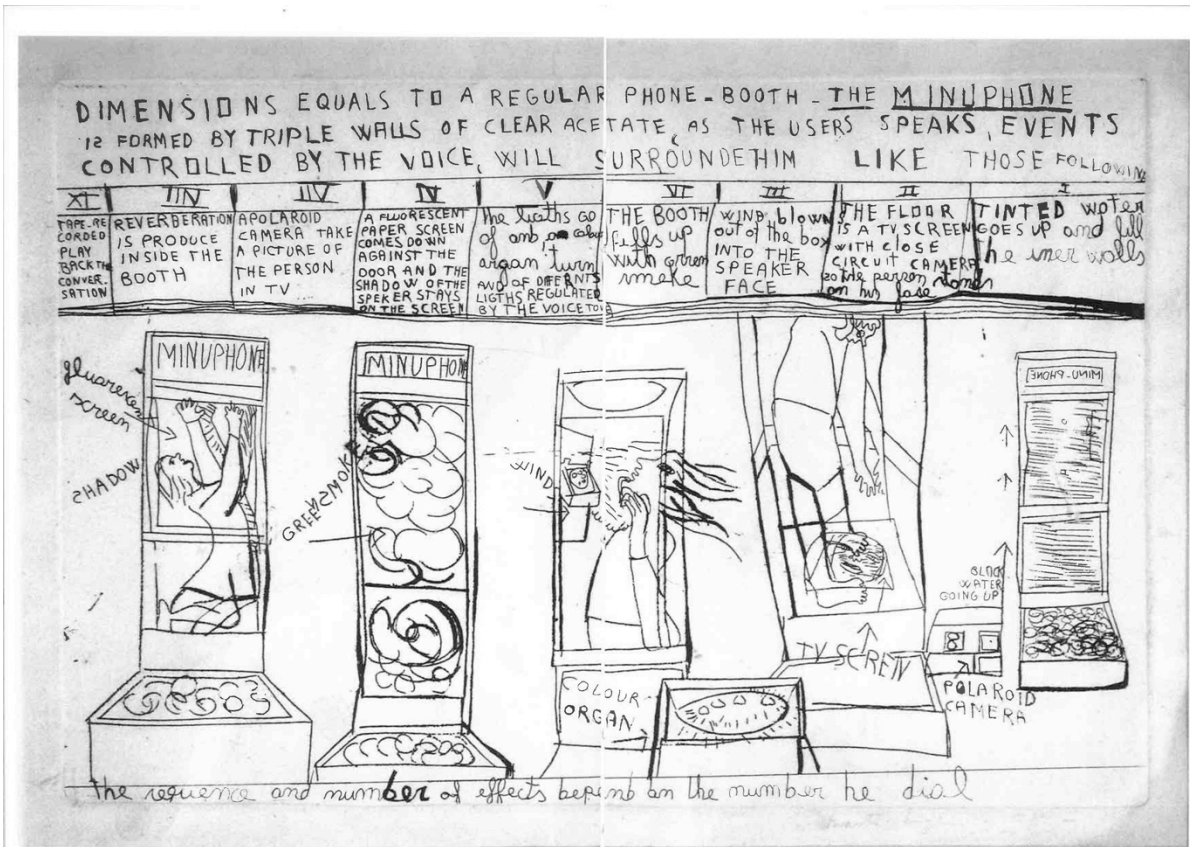 DIMENSIONS EQUALS TO A REGULAR PHONE-BOOTH - THE MINUPHONE
IS FORMED BY TRIPLE WALLS OF CLEAR ACETATE, AS THE USERS SPEAKS, EVENTS
CONTROLLED BY THE VOICE, WILL SURROUNDE HIM LIKE THOSE FOLLOWING
XI
TAPE-RE
CORDED
PLAY
BACK THE
CONVER-
SATION
IIV
REVERBERATION
IS PRODUCE
INSIDE THE
BOOTH
IIV
A POLAROID
CAMERA TAKE
A PICTURE OF
THE PERSON
IN TV
IV
A FLUORESCENT
PAPER SCREEN
COMES DOWN
AGAINST THE
DOOR AND THE
SHADOW OF THE
SPEKER STAYS
ON THE SCREEN
V
the ligths go
of and a colour
organ turn
and of DIFERNTS
LIGTHS REGULATED
BY THE VOICE TONE
VI
THE BOOTH
fills up
with green
smoke
III
WIND, blown
out of the box
INTO THE
SPEAKER
FACE
II
THE FLOOR
IS A TV SCREEN
WITH CLOSE
CIRCUIT CAMERA
so the person stands
on his face
I
TINTED water
GOES UP and fill
the iner walls
MINUPHONE
fluorescen
screen
SHADOW
MINUPHONE
GREEN SMOKE
WIND
TV SCREN
MINU-PHONE
BLACK
WATER
GOING UP
POLAROID
CAMERA
COLOUR-
ORGAN
the sequence and number of effects depend on the number he dial